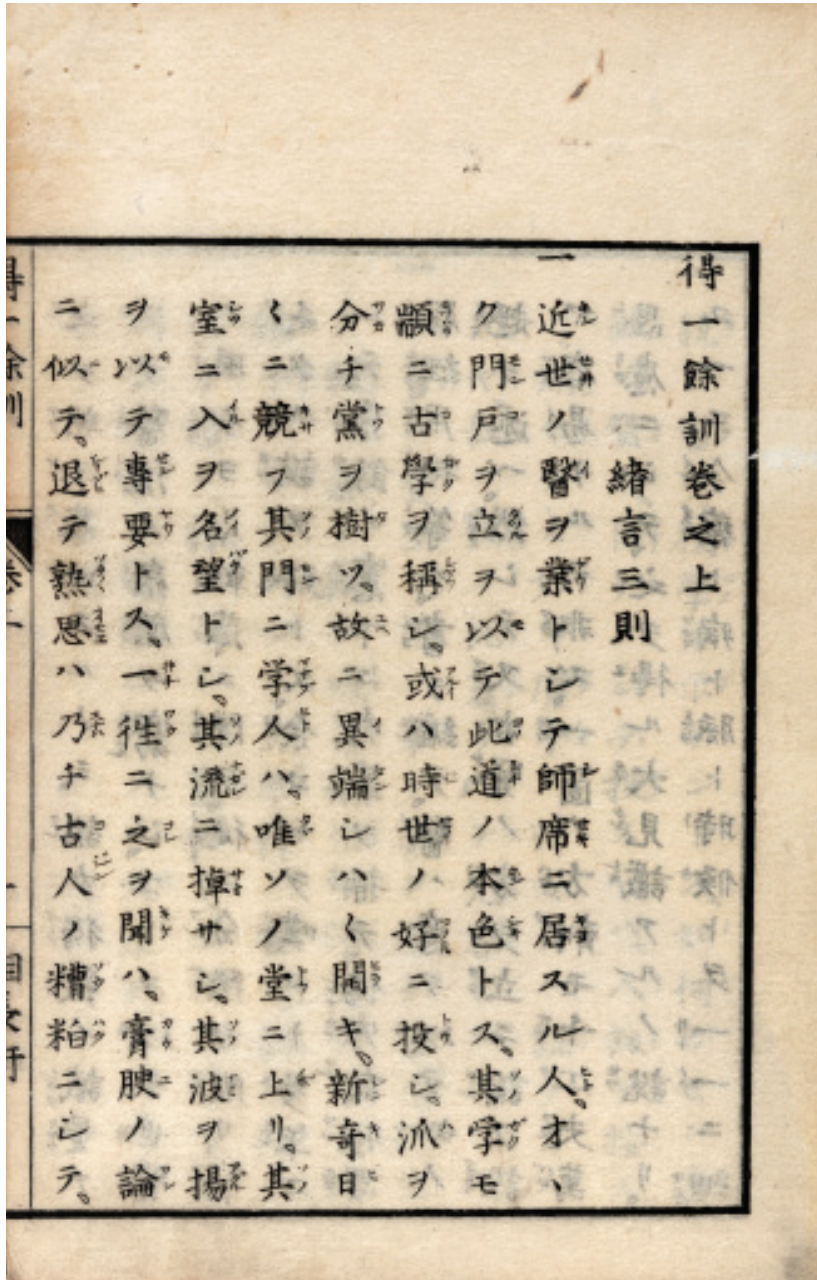 得一餘訓卷之上
緒言三則
一近世ノ醫ヲ業トシテ師席ニ居スル人。オヽ
ク門戸ヲ立ヲ以テ此道ノ本色トス。其学モ
顓ニ古學ヲ稱シ。或ハ時世ノ好ニ投シ。派ヲ
分チ黨ヲ樹ツ。故ニ異端シハ〱開キ。新奇日
〱ニ競フ其門ニ学人ハ。唯ソノ堂ニ上リ。其
室ニ入ヲ名望トシ。其流ニ掉サシ。其波ヲ揚
ヲ以テ專要トス。一徃ニ之ヲ聞ハ。膏腴ノ論
ニ似テ。退テ熟思ハ乃チ古人ノ糟粕ニシテ。
得一餘訓